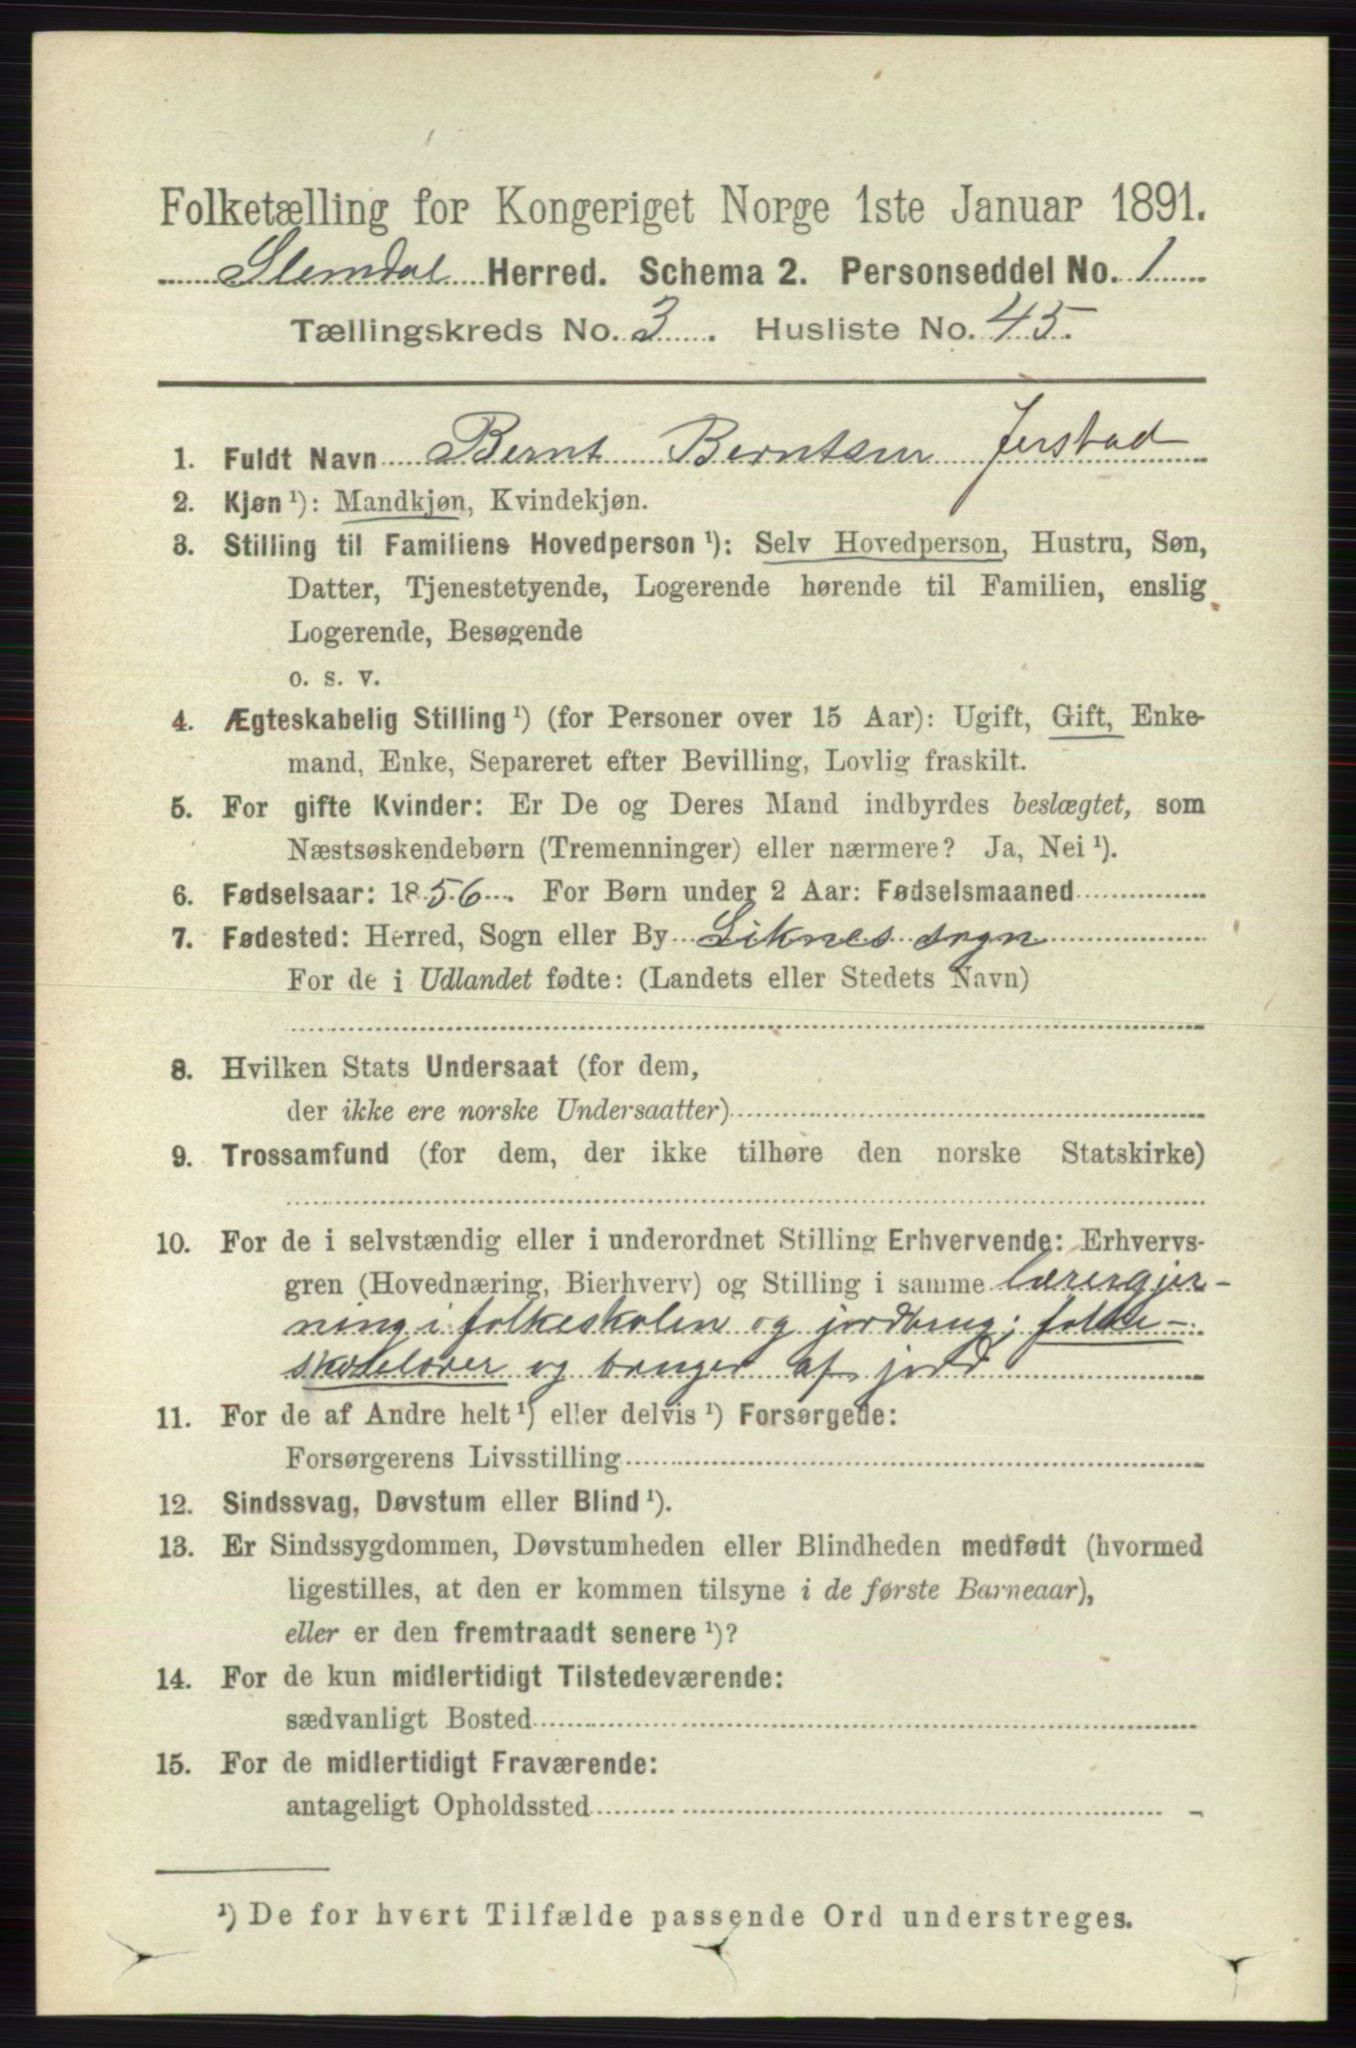 Folketælling for Kongeriget Norge 1ste Januar 1891.
Slemdal Herred. Schema 2. Personseddel No. 1
Tællingskreds No. 3. Husliste No. 45.
1. Fuldt Navn Bernt Berntsen Jerstad
2. Kjøn ¹): Mandkjøn, Kvindekjøn.
3. Stilling til Familiens Hovedperson ¹): Selv Hovedperson, Hustru, Søn,
Datter, Tjenestetyende, Logerende hørende til Familien, enslig
Logerende, Besøgende
o. s. v.
4. Ægteskabelig Stilling ¹) (for Personer over 15 Aar): Ugift, Gift, Enke-
mand, Enke, Separeret efter Bevilling, Lovlig fraskilt.
5. For gifte Kvinder: Er De og Deres Mand indbyrdes beslægtet, som
Næstsøskendebørn (Tremenninger) eller nærmere? Ja, Nei ¹).
6. Fødselsaar: 1856. For Børn under 2 Aar: Fødselsmaaned
7. Fødested: Herred, Sogn eller By Liknes sogn
For de i Udlandet fødte: (Landets eller Stedets Navn)
8. Hvilken Stats Undersaat (for dem,
der ikke ere norske Undersaatter)
9. Trossamfund (for dem, der ikke tilhøre den norske Statskirke)
10. For de i selvstændig eller i underordnet Stilling Erhvervende: Erhvervs-
gren (Hovednæring, Bierhverv) og Stilling i samme lærergjer-
ning i folkeskolen og jordbrug; folke-
skolelærer og bruger af jord
11. For de af Andre helt ¹) eller delvis ¹) Forsørgede:
Forsørgerens Livsstilling
12. Sindssvag, Døvstum eller Blind ¹).
13. Er Sindssygdommen, Døvstumheden eller Blindheden medfødt (hvormed
ligestilles, at den er kommen tilsyne i de første Barneaar),
eller er den fremtraadt senere ¹)?
14. For de kun midlertidigt Tilstedeværende:
sædvanligt Bosted
15. For de midlertidigt Fraværende:
antageligt Opholdssted
¹) De for hvert Tilfælde passende Ord understreges.